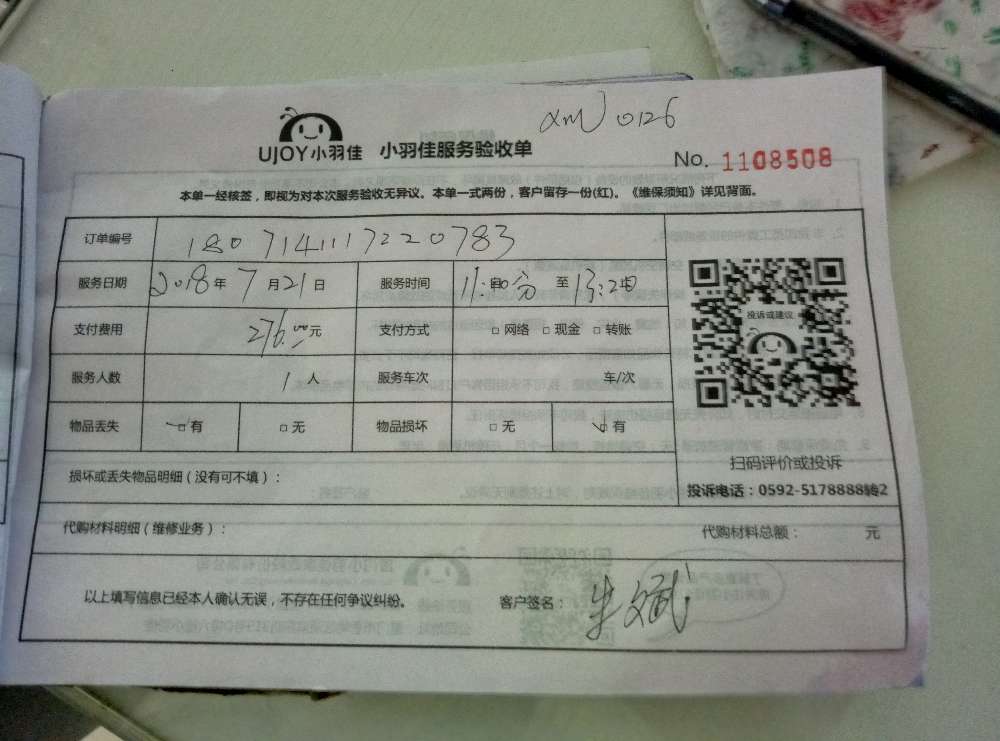 XMJ0126
UJOY小羽佳 小羽佳服务验收单
No. 1108508
本单一经核签，即视为对本次服务验收无异议。本单一式两份，客户留存一份(红)。《维保须知》详见背面。
订单编号 1807141117220783
服务日期 2018年7月21日 服务时间 至
支付费用 276.00元 支付方式 □网络 □现金 □转账
服务人数 1人 服务车次 车/次
物品丢失 □有 □无 物品损坏 □无 □有
投诉或建议
扫码评价或投诉
投诉电话：0592-5178888转2
损坏或丢失物品明细（没有可不填）：
代购材料明细（维修业务）： 代购材料总额： 元
以上填写信息已经本人确认无误，不存在任何争议纠纷。 客户签名：